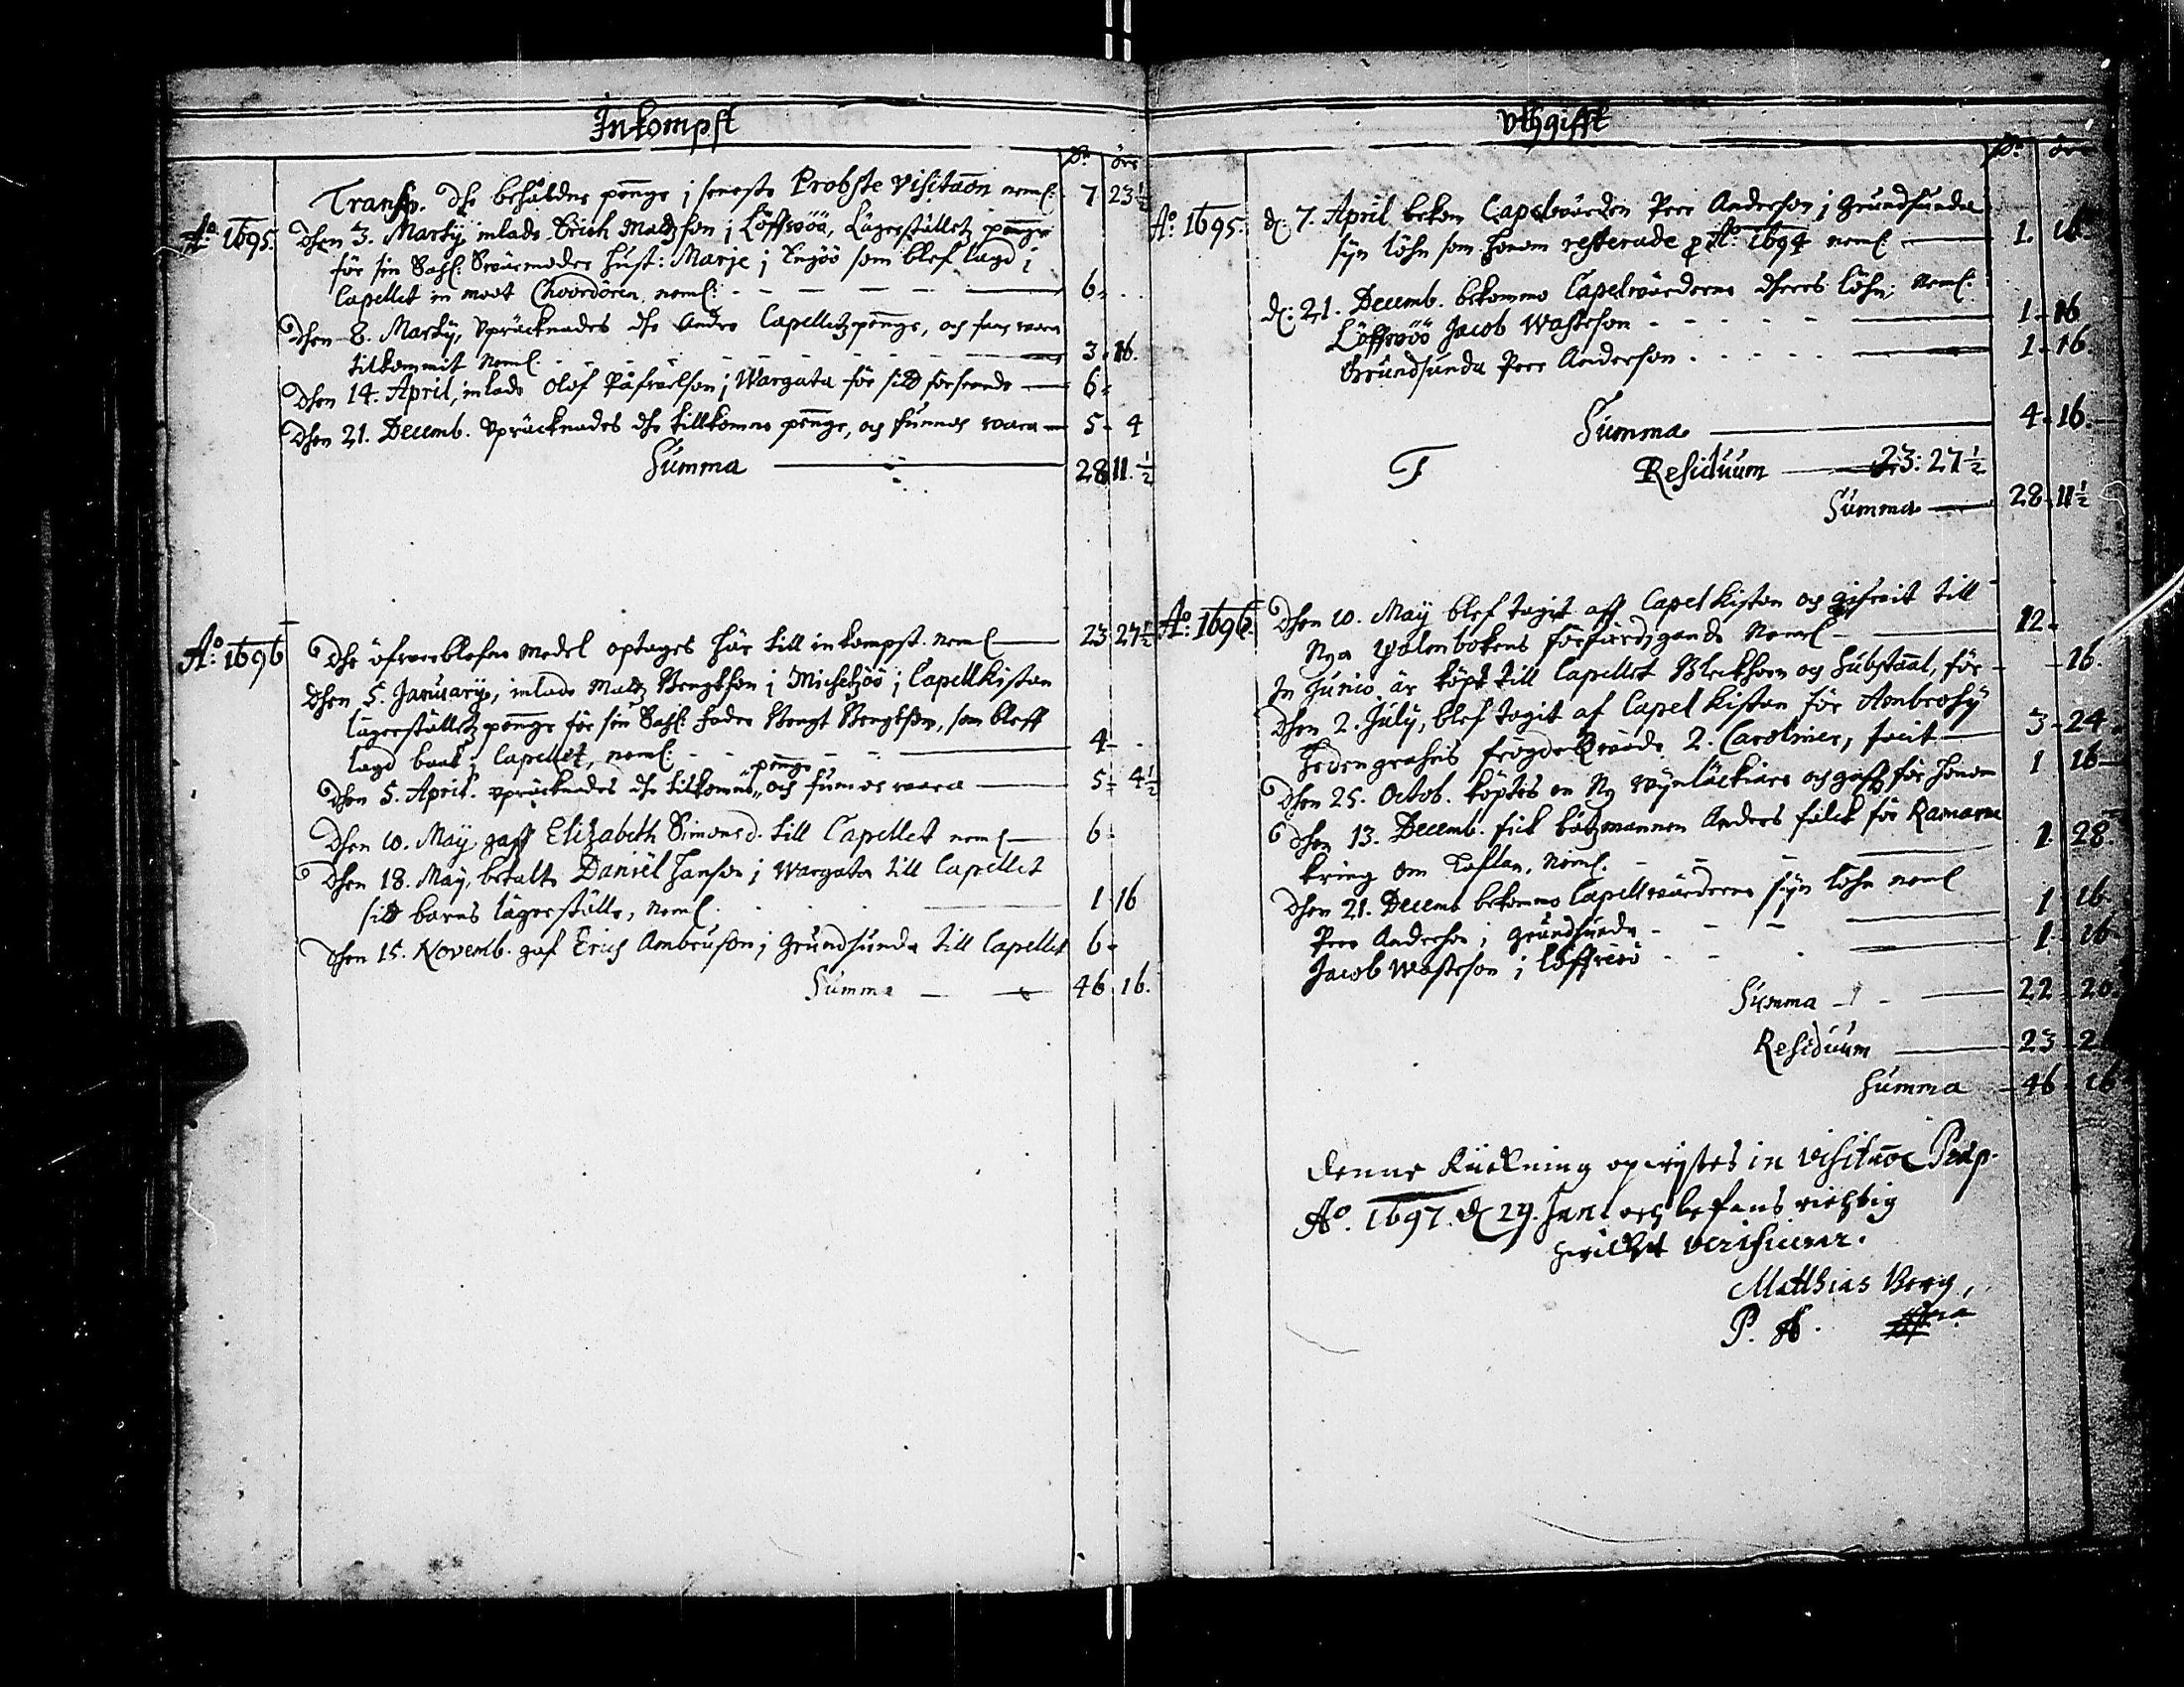 Inkompst
Dr öre
Transp. dhe behåldne penge j seneste Probste Visitaon neml: 7 23½
Ao: 1695. Dhen 3. Martij inlade Erich Matzson j Löffwöö, Lägerställetz penge
för sin Sahl: Swärmoder Hust: Marje j Engöö som blef lagd i
Capellet in moot Choordören neml: 6 -
Dhen 8. Martij, Upräcknades dhe Andre Capelletz penge, och fans wara
tilkommit Neml. 3 - 16.
Dhen 14. April, inlade Olof Påfwelson j Wargata för sitt förseende 6 -
Dhen 21. Decemb. Upräcknades dhe tillkomne penge, och funnos wara 5 - 4
Summa 28 11.½
Ao: 1696 Dhe öfwerblefne medel optages här till inkompst. neml 23 27½
Dhen 5. January, inlade Matz Bengtson j Michelsöö j Capellkistan
lägerställetz penge för sin Sahl: fader Bengt Bengtson, som bleff
lagd baak j Capellet, neml: 4 -
Dhen 5. April. upräcknades dhe tilkomne penge och funnos wara 5 - 4½
Dhen 10. Maij gaff Elizabeth Simonsd. till Capellet neml 6 -
Dhen 18. Maij, betalte Daniel Hanson j Wargata till Capellet
sitt barns lägerställe, neml. 1 16
Dhen 15. Novemb. gaf Erich Ambruson j Grundsunda till Capellet 6 -
Summa 46 16.
Vthgifft
Dr öre
Ao: 1695. d: 7. April bekom Capelwärden Peer Anderson j Grundsunda
syn löhn som honom resterade p Ao: 1694 neml: 1. 16
d: 21. Decemb. bekomme Capelwärderne theres löhn, neml:
Löffwöö Jacob Wasteson 1 - 16
Grundsunda Peer Anderson 1 - 16.
Summa 4 - 16.
Residuum 23: 27½
Summa 28 - 11½
Ao: 1696. Dhen 10. Maij blef tagit aff Capel Kistan och gifwit till
Nya Psalmbokens förfärdigande Neml 12 -
In Junio är köpt till Capellet Bleckhorn och, för - 16.
Dhen 2. July, blef tagit af Capel Kistan för Ambrosij
Hedengrahns 2. Caroliner, facit 3 - 24
Dhen 25. Octob. köptes en Ny och gaffz för honom 1 16
Dhen 13. Decemb. fick båtzmannen Anders falck för Ramarne
kring om Taflan, Neml. 1. 28.
Dhen 21. Decemb bekomme Capellwärderne syn löhn neml
Peer Anderson j Grundsunda 1 16
Jacob Wasteson j löffwöö 1 - 16
Summa 22 - 20.
Residuum 23 - 2
Summa 46 - 16
Denne Räckning oplystes in Visitaoe Præp.
Ao. 1697. d 29. Jan. och befans richtig
hwilket verificerar.
Matthias Berg,
P. A.